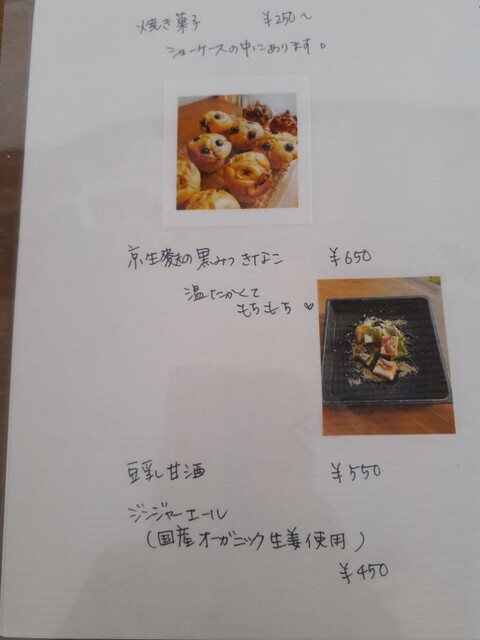 焼き菓子 ¥250~
ショーケースの中にあります。
京生麩の黒みつきなこ ¥650
温たかくて
もちもち♡
豆乳甘酒 ¥550
ジンジャーエール
(国産オーガニック生姜使用)
¥450